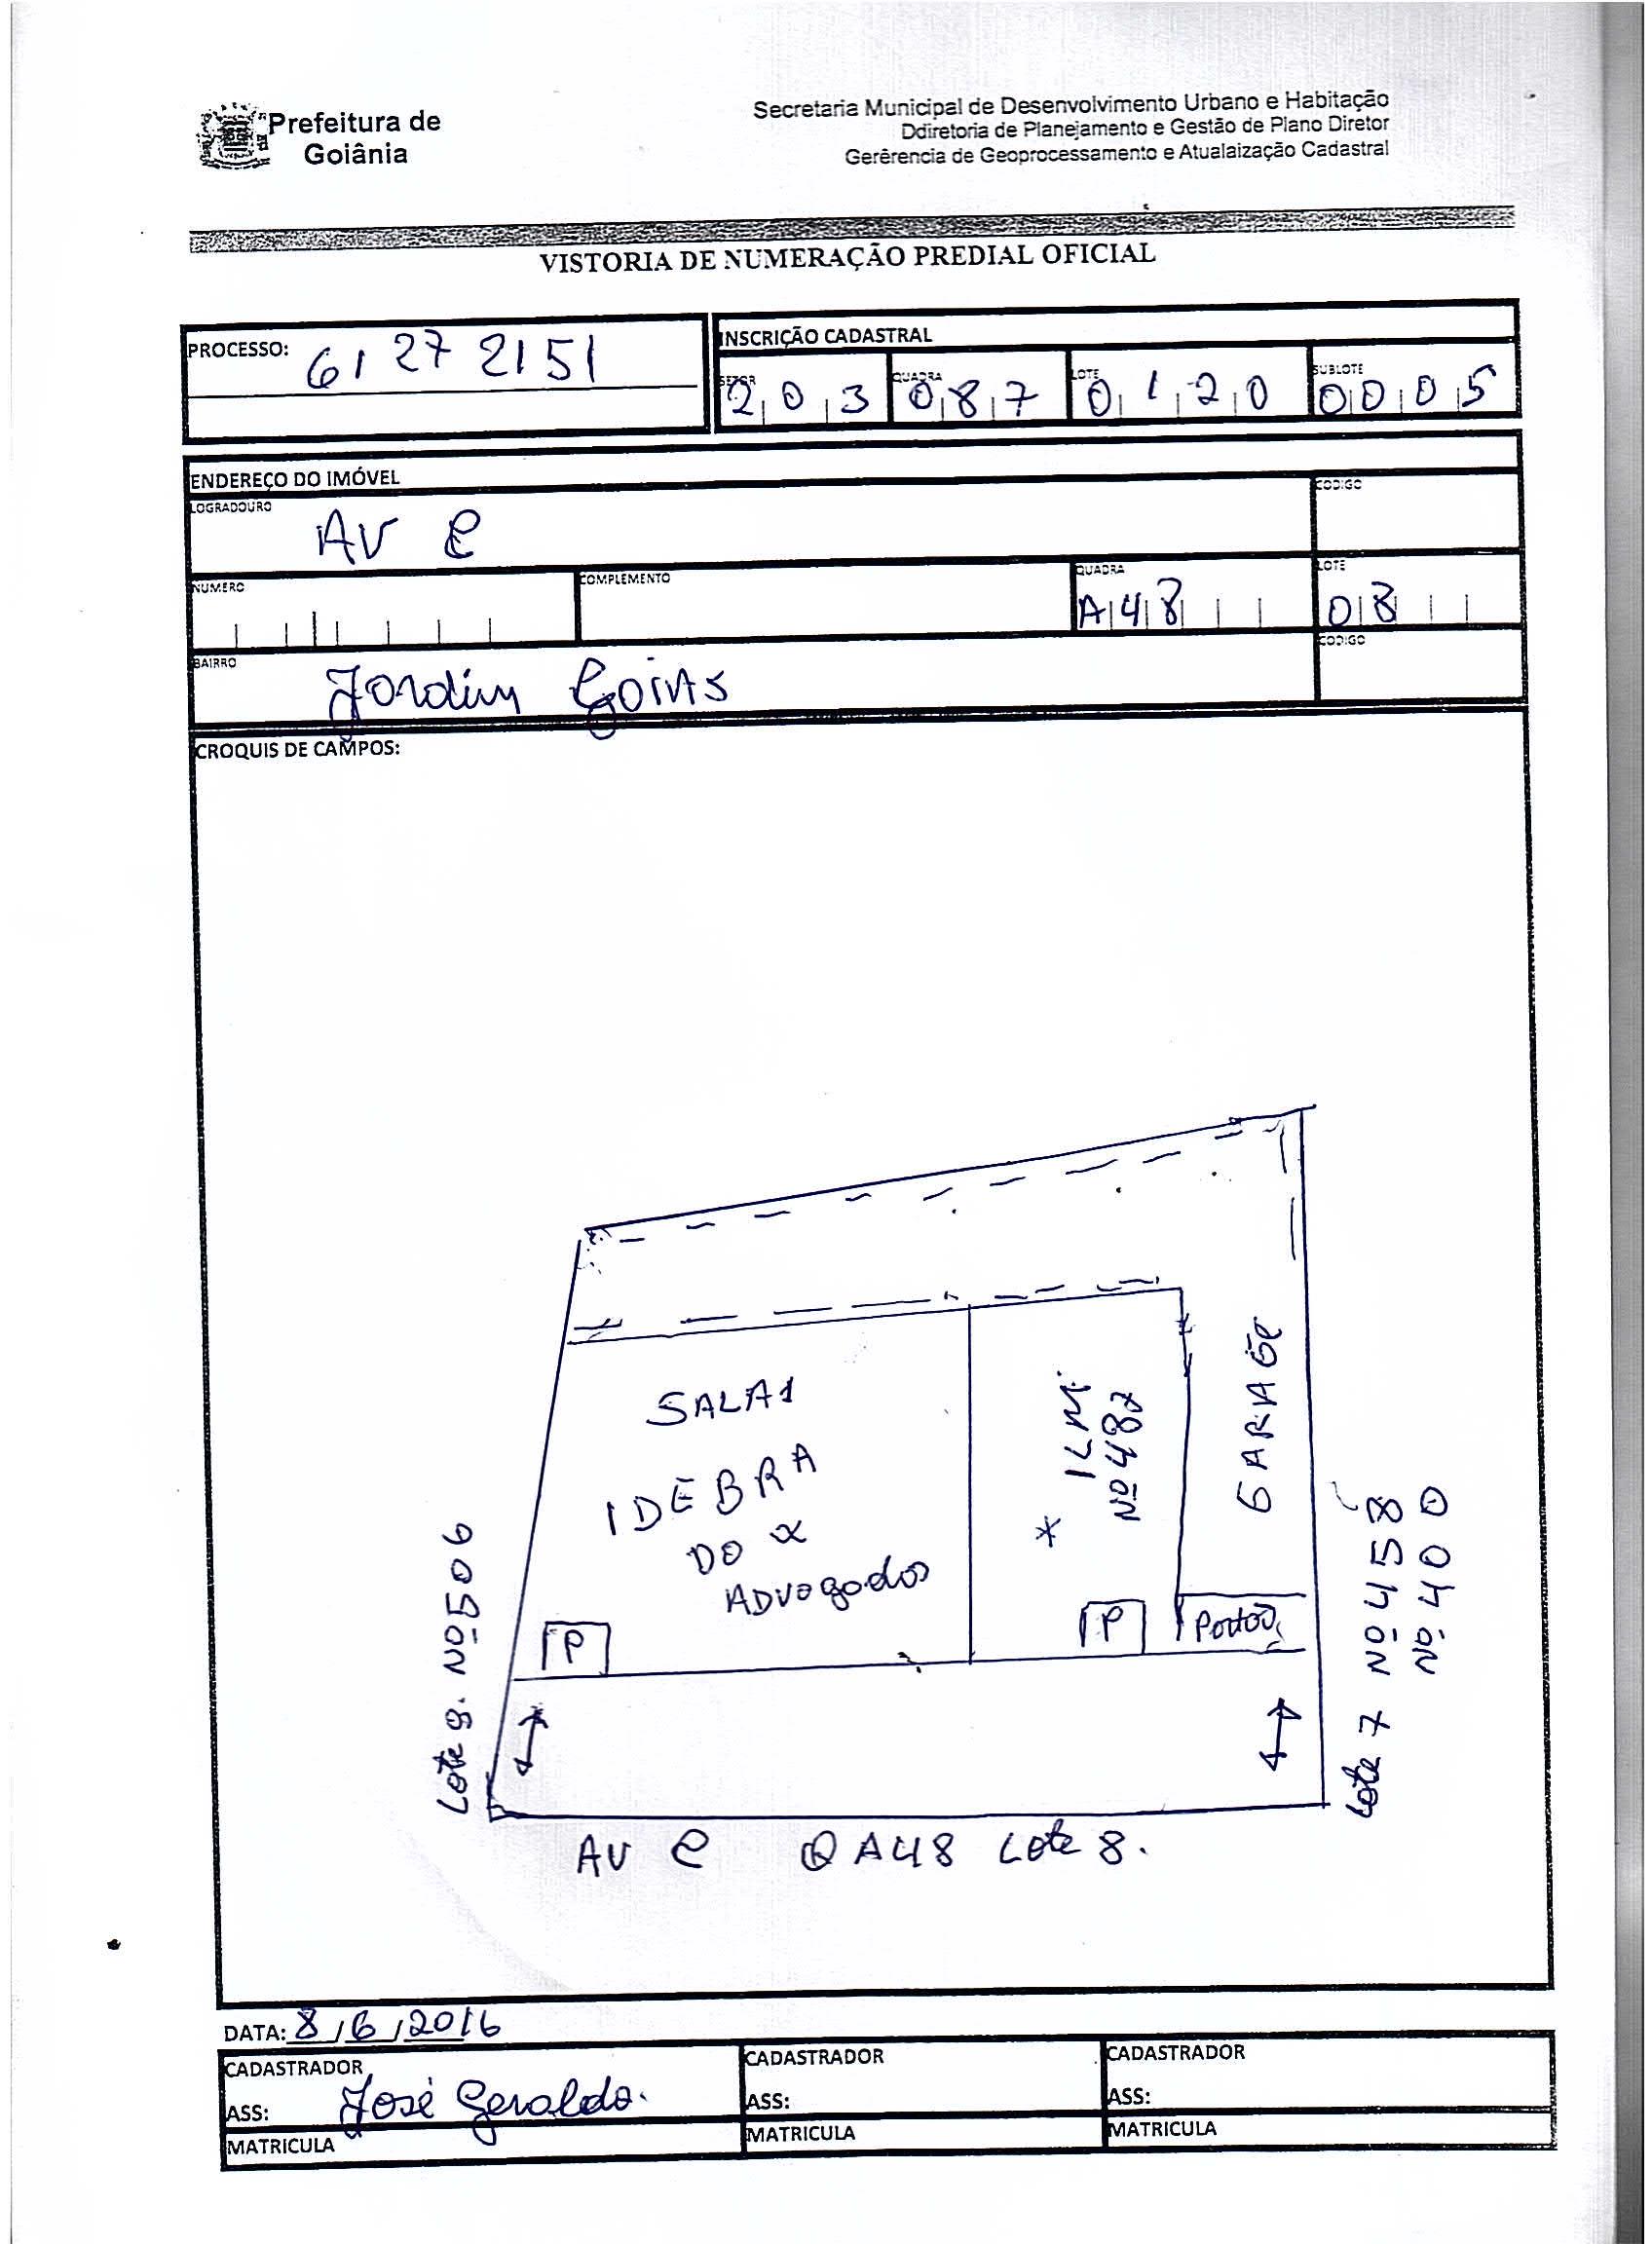 Prefeitura de
Goiânia
Secretaria Municipal de Desenvolvimento Urbano e Habitação
Ddiretoria de Planejamento e Gestão de Plano Diretor
Gerêrencia de Geoprocessamento e Atualaização Cadastral
VISTORIA DE NUMERAÇÃO PREDIAL OFICIAL
PROCESSO: 61272151
INSCRIÇÃO CADASTRAL
SETOR QUADRA LOTE SUBLOTE
203 087 0120 0005
ENDEREÇO DO IMÓVEL
LOGRADOURO CODIGO
AV C
NUMERO COMPLEMENTO QUADRA LOTE
A48 08
BAIRRO CODIGO
Jordim Goias
CROQUIS DE CAMPOS:
SALA1
IDEBRA
DO &
ADVogados
P
* ILM
Nº 487
P
GARAGE
Portão
Lote 9. Nº 506
Lote 7 Nº 458
Nº 400
AV C Q A48 Lote 8.
DATA: 8/6/2016
CADASTRADOR CADASTRADOR CADASTRADOR
ASS: José Geraldo. ASS: ASS:
MATRICULA MATRICULA MATRICULA